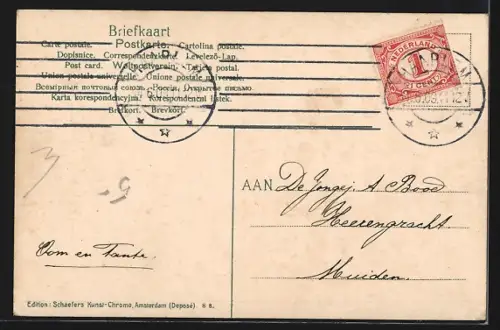 Briefkaart
Carte postale. Postkarte. Cartolina postale.
Dopisnice. Correspondenzkarte. Levelező-Lap.
Post card. Weltpostverein. Tarjeta postal.
Union postale universelle. Unione postale universale.
Всемірный почтовый союзъ. Россія. Открытое письмо.
Karta korespondencyjna. Korespondenční listek.
Brefkort. Brevkort.
NEDERLAND
1
1 CENT
5
AAN De Jongej. A Bood
Heerengracht
Muiden.
Oom en Tante.
Edition: Schaefers Kunst-Chromo, Amsterdam (Deposé).